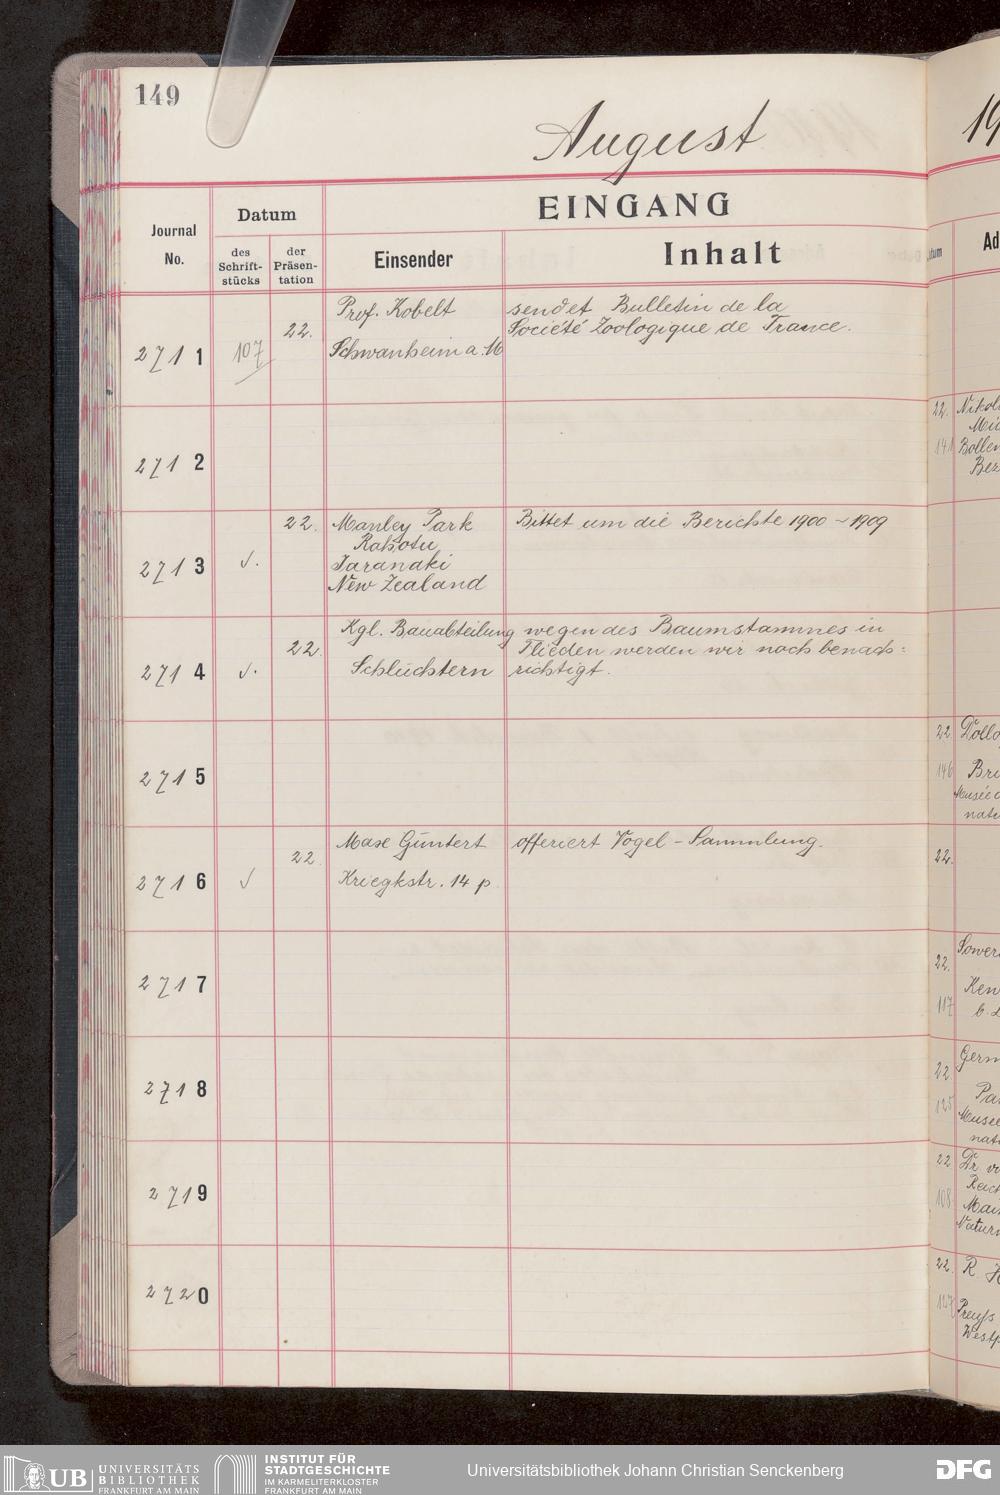 149
August
19
EINGANG
Journal
No.
Datum
des
Schrift-
stücks
der
Präsen-
tation
Einsender
Inhalt
2711
107
22.
Prof. Kobelt
Schwanheim a. M
sendet Bulletin de la
Société Zoologique de France.
2712
2713
✓.
22.
Manley Park
Rahotu
Taranaki
New Zealand
Bittet um die Berichte 1900 – 1909
2714
✓.
22.
Kgl. Bauabteilung
Schlüchtern
wegen des Baumstammes in
Flieden werden wir noch benach:
richtigt.
2715
2716
✓
22.
Max Güntert
Kriegkstr. 14 p.
offeriert Vogel-Sammlung.
2717
2718
2719
2720
Ad
22.
141
22
146
22.
22.
117
22
125
22
108
22.
127
UB
UNIVERSITÄTS
BIBLIOTHEK
FRANKFURT AM MAIN
INSTITUT FÜR
STADTGESCHICHTE
IM KARMELITERKLOSTER
FRANKFURT AM MAIN
Universitätsbibliothek Johann Christian Senckenberg
DFG